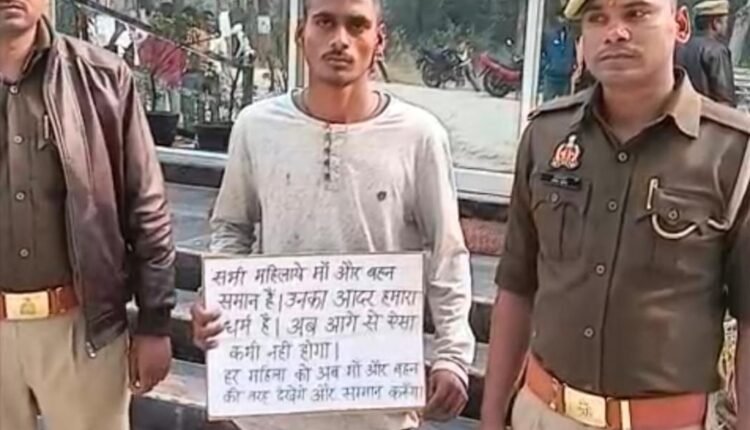 सभी महिलाये माँ और बहन
समान हैं। उनका आदर हमारा
धर्म है। अब आगे से ऐसा
कभी नही होगा।
हर महिला को अब माँ और बहन
की तरह देखेंगे और सम्मान करेंगे।